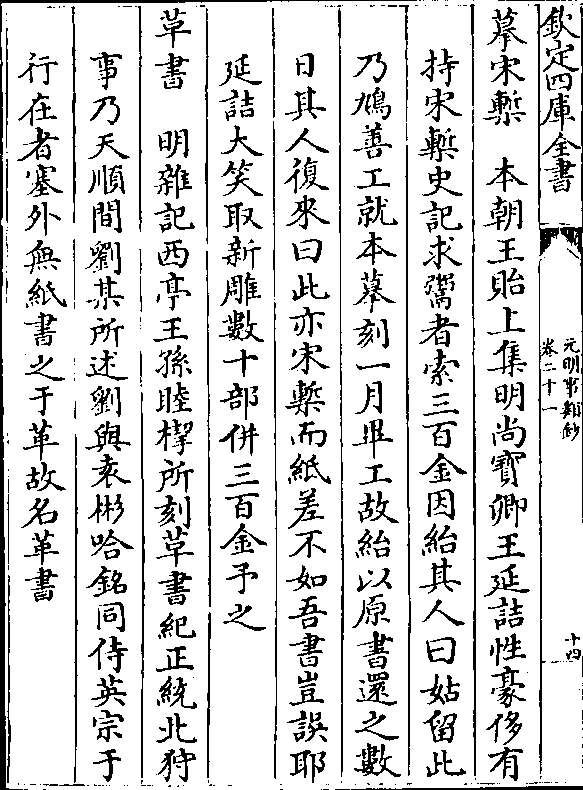 欽定四庫全書
元明事類鈔
卷二十一
十四
摹宋槧　本朝王貽上集明尚寶卿王延喆性豪侈有
持宋槧史記求鬻者索三百金因紿其人曰姑留此
乃鳩善工就本摹刻一月畢工故紿以原書還之數
日其人復來曰此亦宋槧而紙差不如吾書豈誤耶
延喆大笑取新雕數十部併三百金予之
革書　明雜記西亭王孫睦㮮所刻革書紀正統北狩
事乃天順間劉某所述劉與袁彬哈銘同侍英宗于
行在者塞外無紙書之于革故名革書